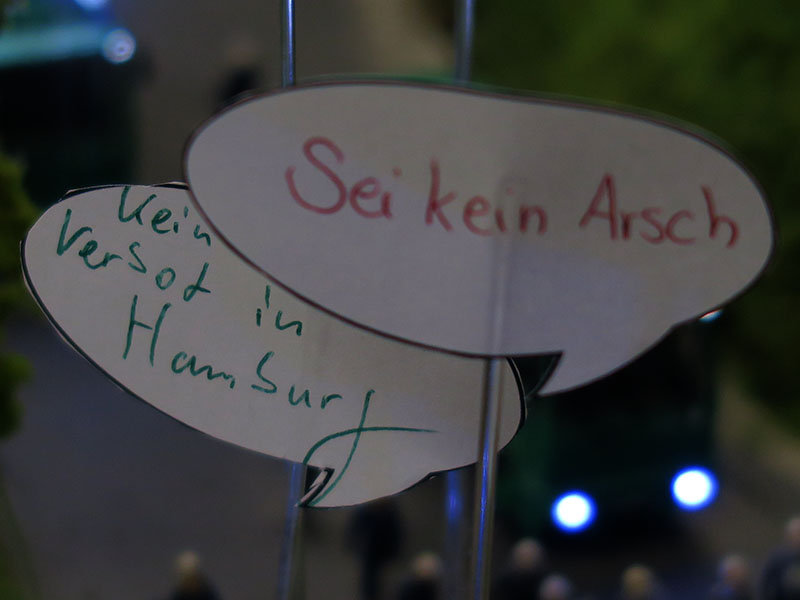 Sei kein Arsch
Kein
Versot in
Hamburg